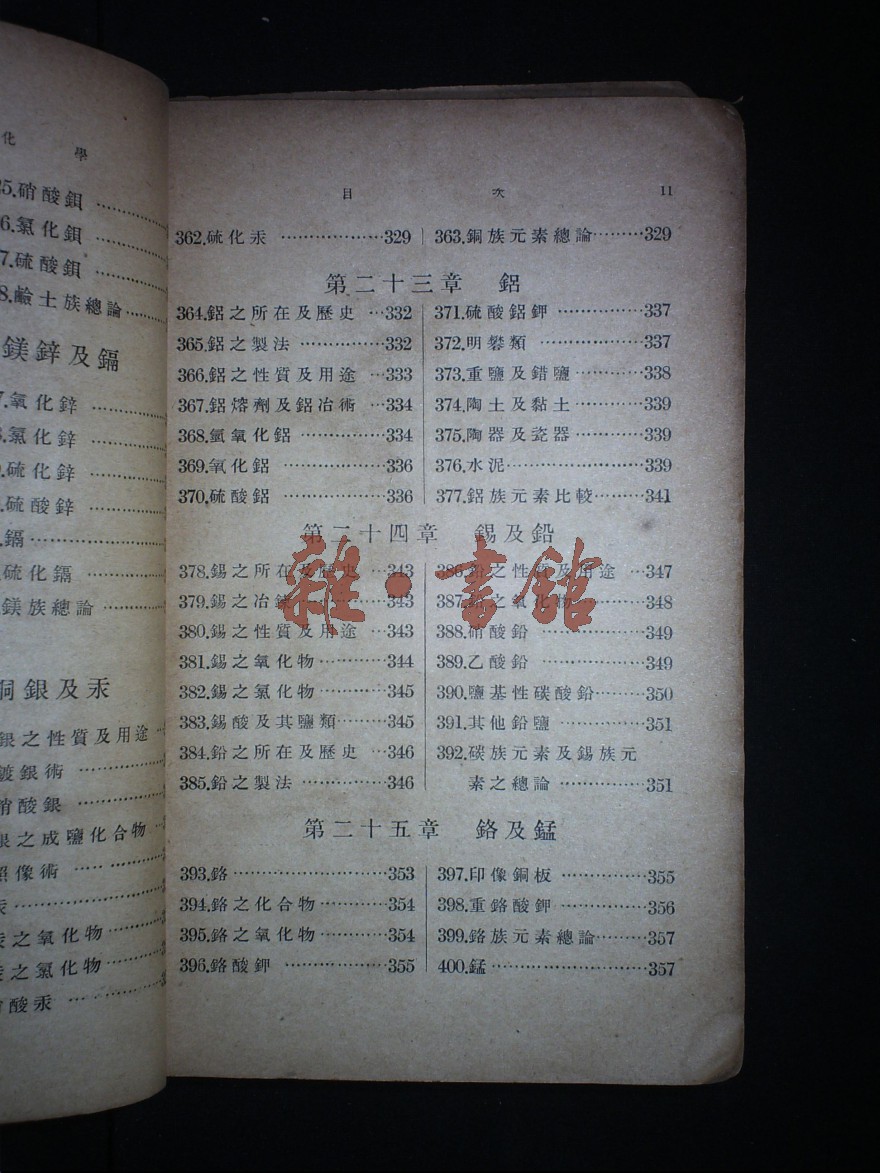 化 學
25.硝酸鋇
6.氯化鋇
7.硫酸鋇
8.鹼土族總論
鎂鋅及鎘
7.氧化鋅
氯化鋅
硫化鋅
硫酸鋅
鎘
硫化鎘
鎂族總論
銅銀及汞
銀之性質及用途
鍍銀術
硝酸銀
銀之成鹽化合物
照像術
汞
汞之氧化物
汞之氯化物
酸汞
目 次 11
362.硫化汞 ……………329
363.銅族元素總論………329
第二十三章 鋁
364.鋁之所在及歷史 …332
365.鋁之製法 ……………332
366.鋁之性質及用途 …333
367.鋁熔劑及鋁冶術 …334
368.氫氧化鋁 ……………334
369.氧化鋁 ………………336
370.硫酸鋁 ………………336
371.硫酸鋁鉀 ……………337
372.明礬類 ………………337
373.重鹽及錯鹽 …………338
374.陶土及黏土 …………339
375.陶器及瓷器 …………339
376.水泥……………………339
377.鋁族元素比較………341
第二十四章 錫及鉛
378.錫之所在及歷史 …343
379.錫之冶鍊 ……………343
380.錫之性質及用途 …343
381.錫之氧化物…………344
382.錫之氯化物…………345
383.錫酸及其鹽類………345
384.鉛之所在及歷史 …346
385.鉛之製法 ……………346
386.鉛之性質及用途 …347
387.鉛之氧化物…………348
388.硝酸鉛 ………………349
389.乙酸鉛 ………………349
390.鹽基性碳酸鉛………350
391.其他鉛鹽 ……………351
392.碳族元素及錫族元
素之總論 ……………351
雜·書館
第二十五章 鉻及錳
393.鉻………………………353
394.鉻之化合物…………354
395.鉻之氧化物…………354
396.鉻酸鉀 ………………355
397.印像銅板 ……………355
398.重鉻酸鉀 ……………356
399.鉻族元素總論………357
400.錳………………………357